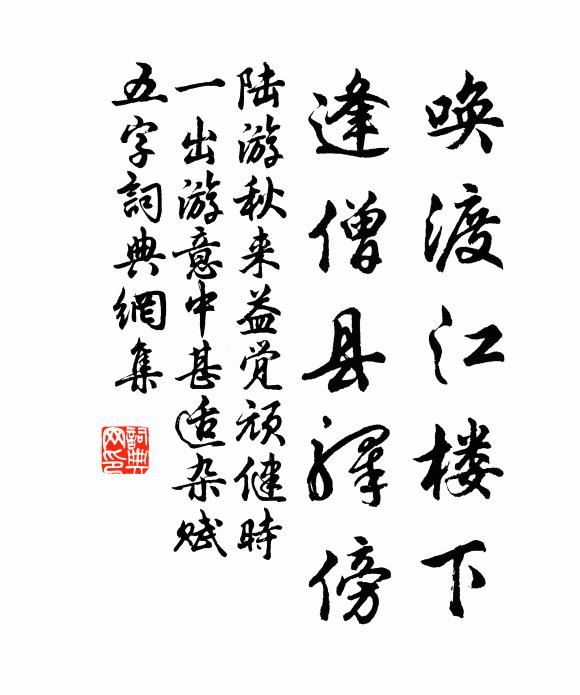 唤渡江楼下
逢僧县驿傍
陆游秋来益觉顽健時
一出游意中甚适杂赋
五字詞典網集
詞典
网印